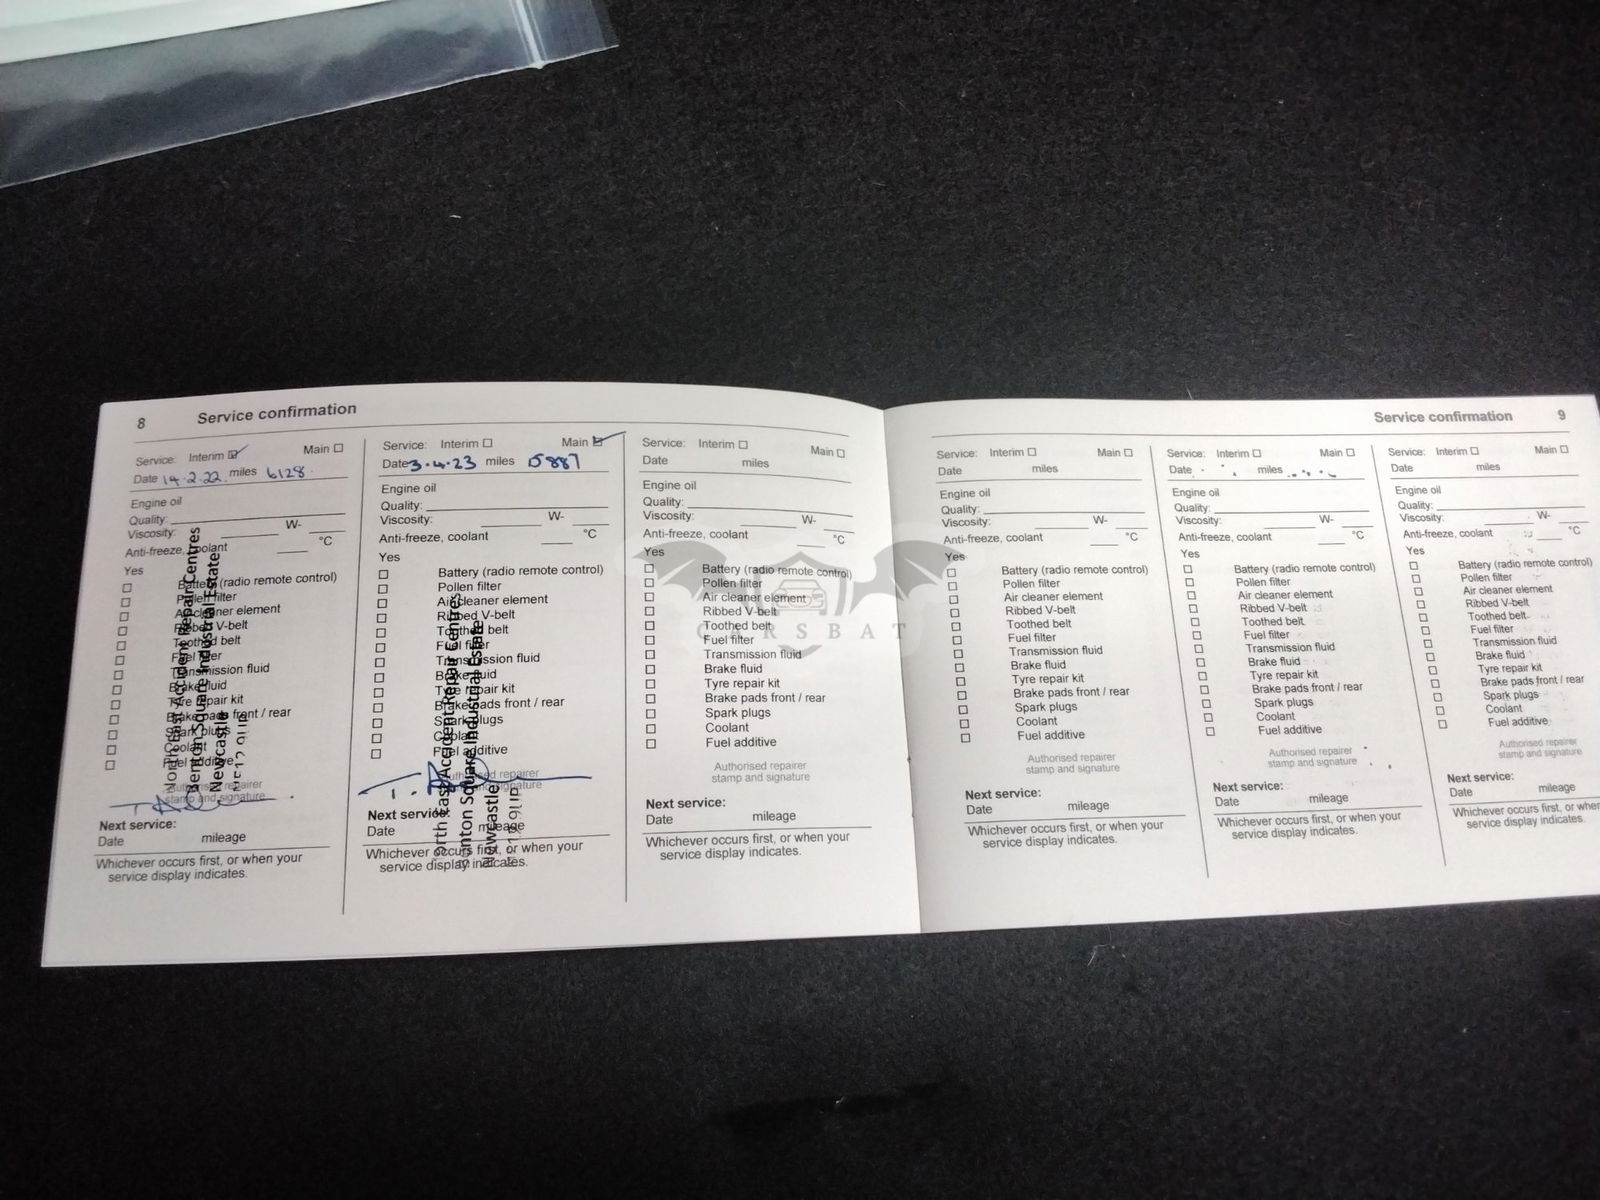 8 Service confirmation
Service: Interim Main
Date 14.2.22 miles 6128
Engine oil
Quality:
Viscosity: W-
Anti-freeze, coolant °C
Yes
Battery (radio remote control)
Pollen filter
Air cleaner element
Ribbed V-belt
Toothed belt
Fuel filter
Transmission fluid
Brake fluid
Tyre repair kit
Brake pads front / rear
Spark plugs
Coolant
Fuel additive
Authorised repairer
stamp and signature
North East Accident Repair Centres
Benton Square Industrial Estate
Newcastle
Next service:
Date mileage
Whichever occurs first, or when your
service display indicates.
Service: Interim Main
Date 3.4.23 miles 15887
Engine oil
Quality:
Viscosity: W-
Anti-freeze, coolant °C
Yes
Battery (radio remote control)
Pollen filter
Air cleaner element
Ribbed V-belt
Toothed belt
Fuel filter
Transmission fluid
Brake fluid
Tyre repair kit
Brake pads front / rear
Spark plugs
Coolant
Fuel additive
Authorised repairer
stamp and signature
North East Accident Repair Centres
Benton Square Industrial Estate
Newcastle
Next service:
Date mileage
Whichever occurs first, or when your
service display indicates.
Service: Interim Main
Date miles
Engine oil
Quality:
Viscosity: W-
Anti-freeze, coolant °C
Yes
Battery (radio remote control)
Pollen filter
Air cleaner element
Ribbed V-belt
Toothed belt
Fuel filter
Transmission fluid
Brake fluid
Tyre repair kit
Brake pads front / rear
Spark plugs
Coolant
Fuel additive
Authorised repairer
stamp and signature
Next service:
Date mileage
Whichever occurs first, or when your
service display indicates.
CARSBAT
Service confirmation 9
Service: Interim Main
Date miles
Engine oil
Quality:
Viscosity: W-
Anti-freeze, coolant °C
Yes
Battery (radio remote control)
Pollen filter
Air cleaner element
Ribbed V-belt
Toothed belt
Fuel filter
Transmission fluid
Brake fluid
Tyre repair kit
Brake pads front / rear
Spark plugs
Coolant
Fuel additive
Authorised repairer
stamp and signature
Next service:
Date mileage
Whichever occurs first, or when your
service display indicates.
Service: Interim Main
Date miles
Engine oil
Quality:
Viscosity: W-
Anti-freeze, coolant °C
Yes
Battery (radio remote control)
Pollen filter
Air cleaner element
Ribbed V-belt
Toothed belt
Fuel filter
Transmission fluid
Brake fluid
Tyre repair kit
Brake pads front / rear
Spark plugs
Coolant
Fuel additive
Authorised repairer
stamp and signature
Next service:
Date mileage
Whichever occurs first, or when your
service display indicates.
Service: Interim Main
Date miles
Engine oil
Quality:
Viscosity: W-
Anti-freeze, coolant °C
Yes
Battery (radio remote control)
Pollen filter
Air cleaner element
Ribbed V-belt
Toothed belt
Fuel filter
Transmission fluid
Brake fluid
Tyre repair kit
Brake pads front / rear
Spark plugs
Coolant
Fuel additive
Authorised repairer
stamp and signature
Next service:
Date mileage
Whichever occurs first, or when
service display indicates.